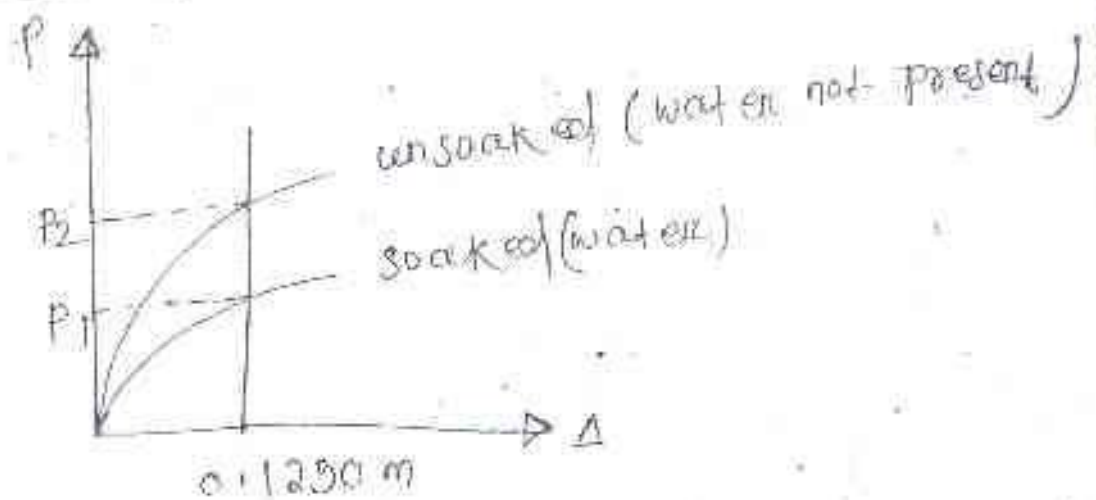 P
unsoaked (water not present)
P2
soaked (water)
P1
Δ
0.1250 m